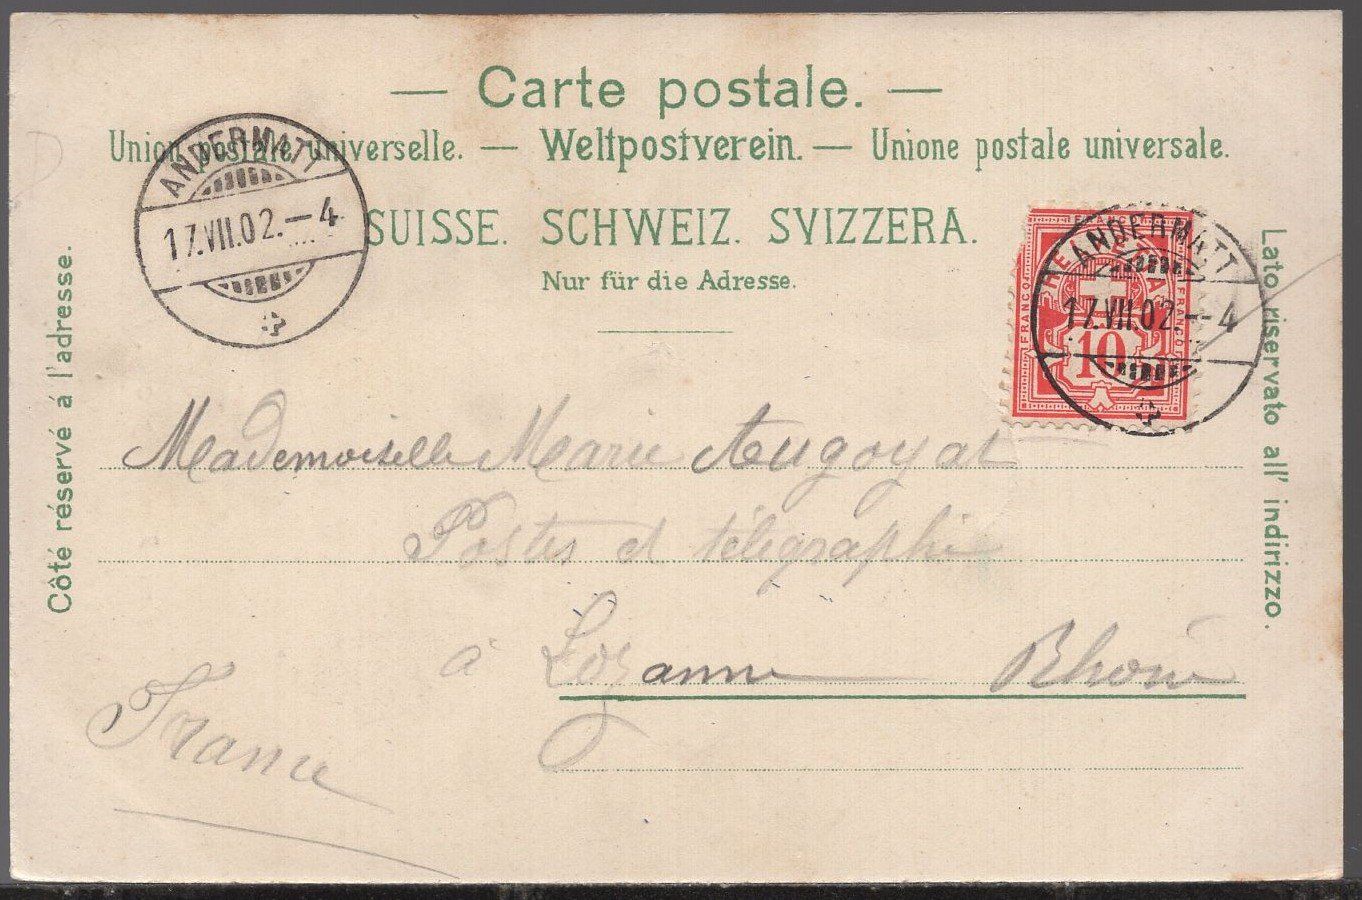 — Carte postale. —
Union postale universelle. — Weltpostverein. — Unione postale universale.
SUISSE. SCHWEIZ. SVIZZERA.
Nur für die Adresse.
ANDERMATT
17.VII.02.–4
FRANCO HELVETIA FRANCO
10
ANDERMATT
17.VII.02.–4
Côté réservé á l'adresse.
Lato riservato all' indirizzo.
Mademoiselle Marie Augoyat
Postes et télégraphie
à Lozanne Rhône
France